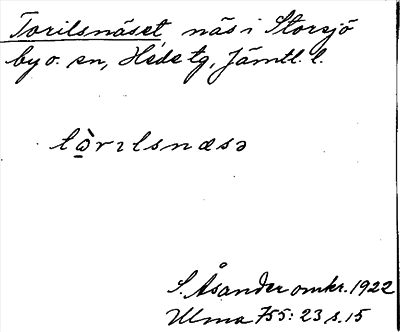 Torilsnäset näs i Storsjö
by o. sn, Hede tg, Jämtl. l.
tò̱rɪlsnæsə
S. Åsander omkr. 1922
Ulma 755: 23 s. 15